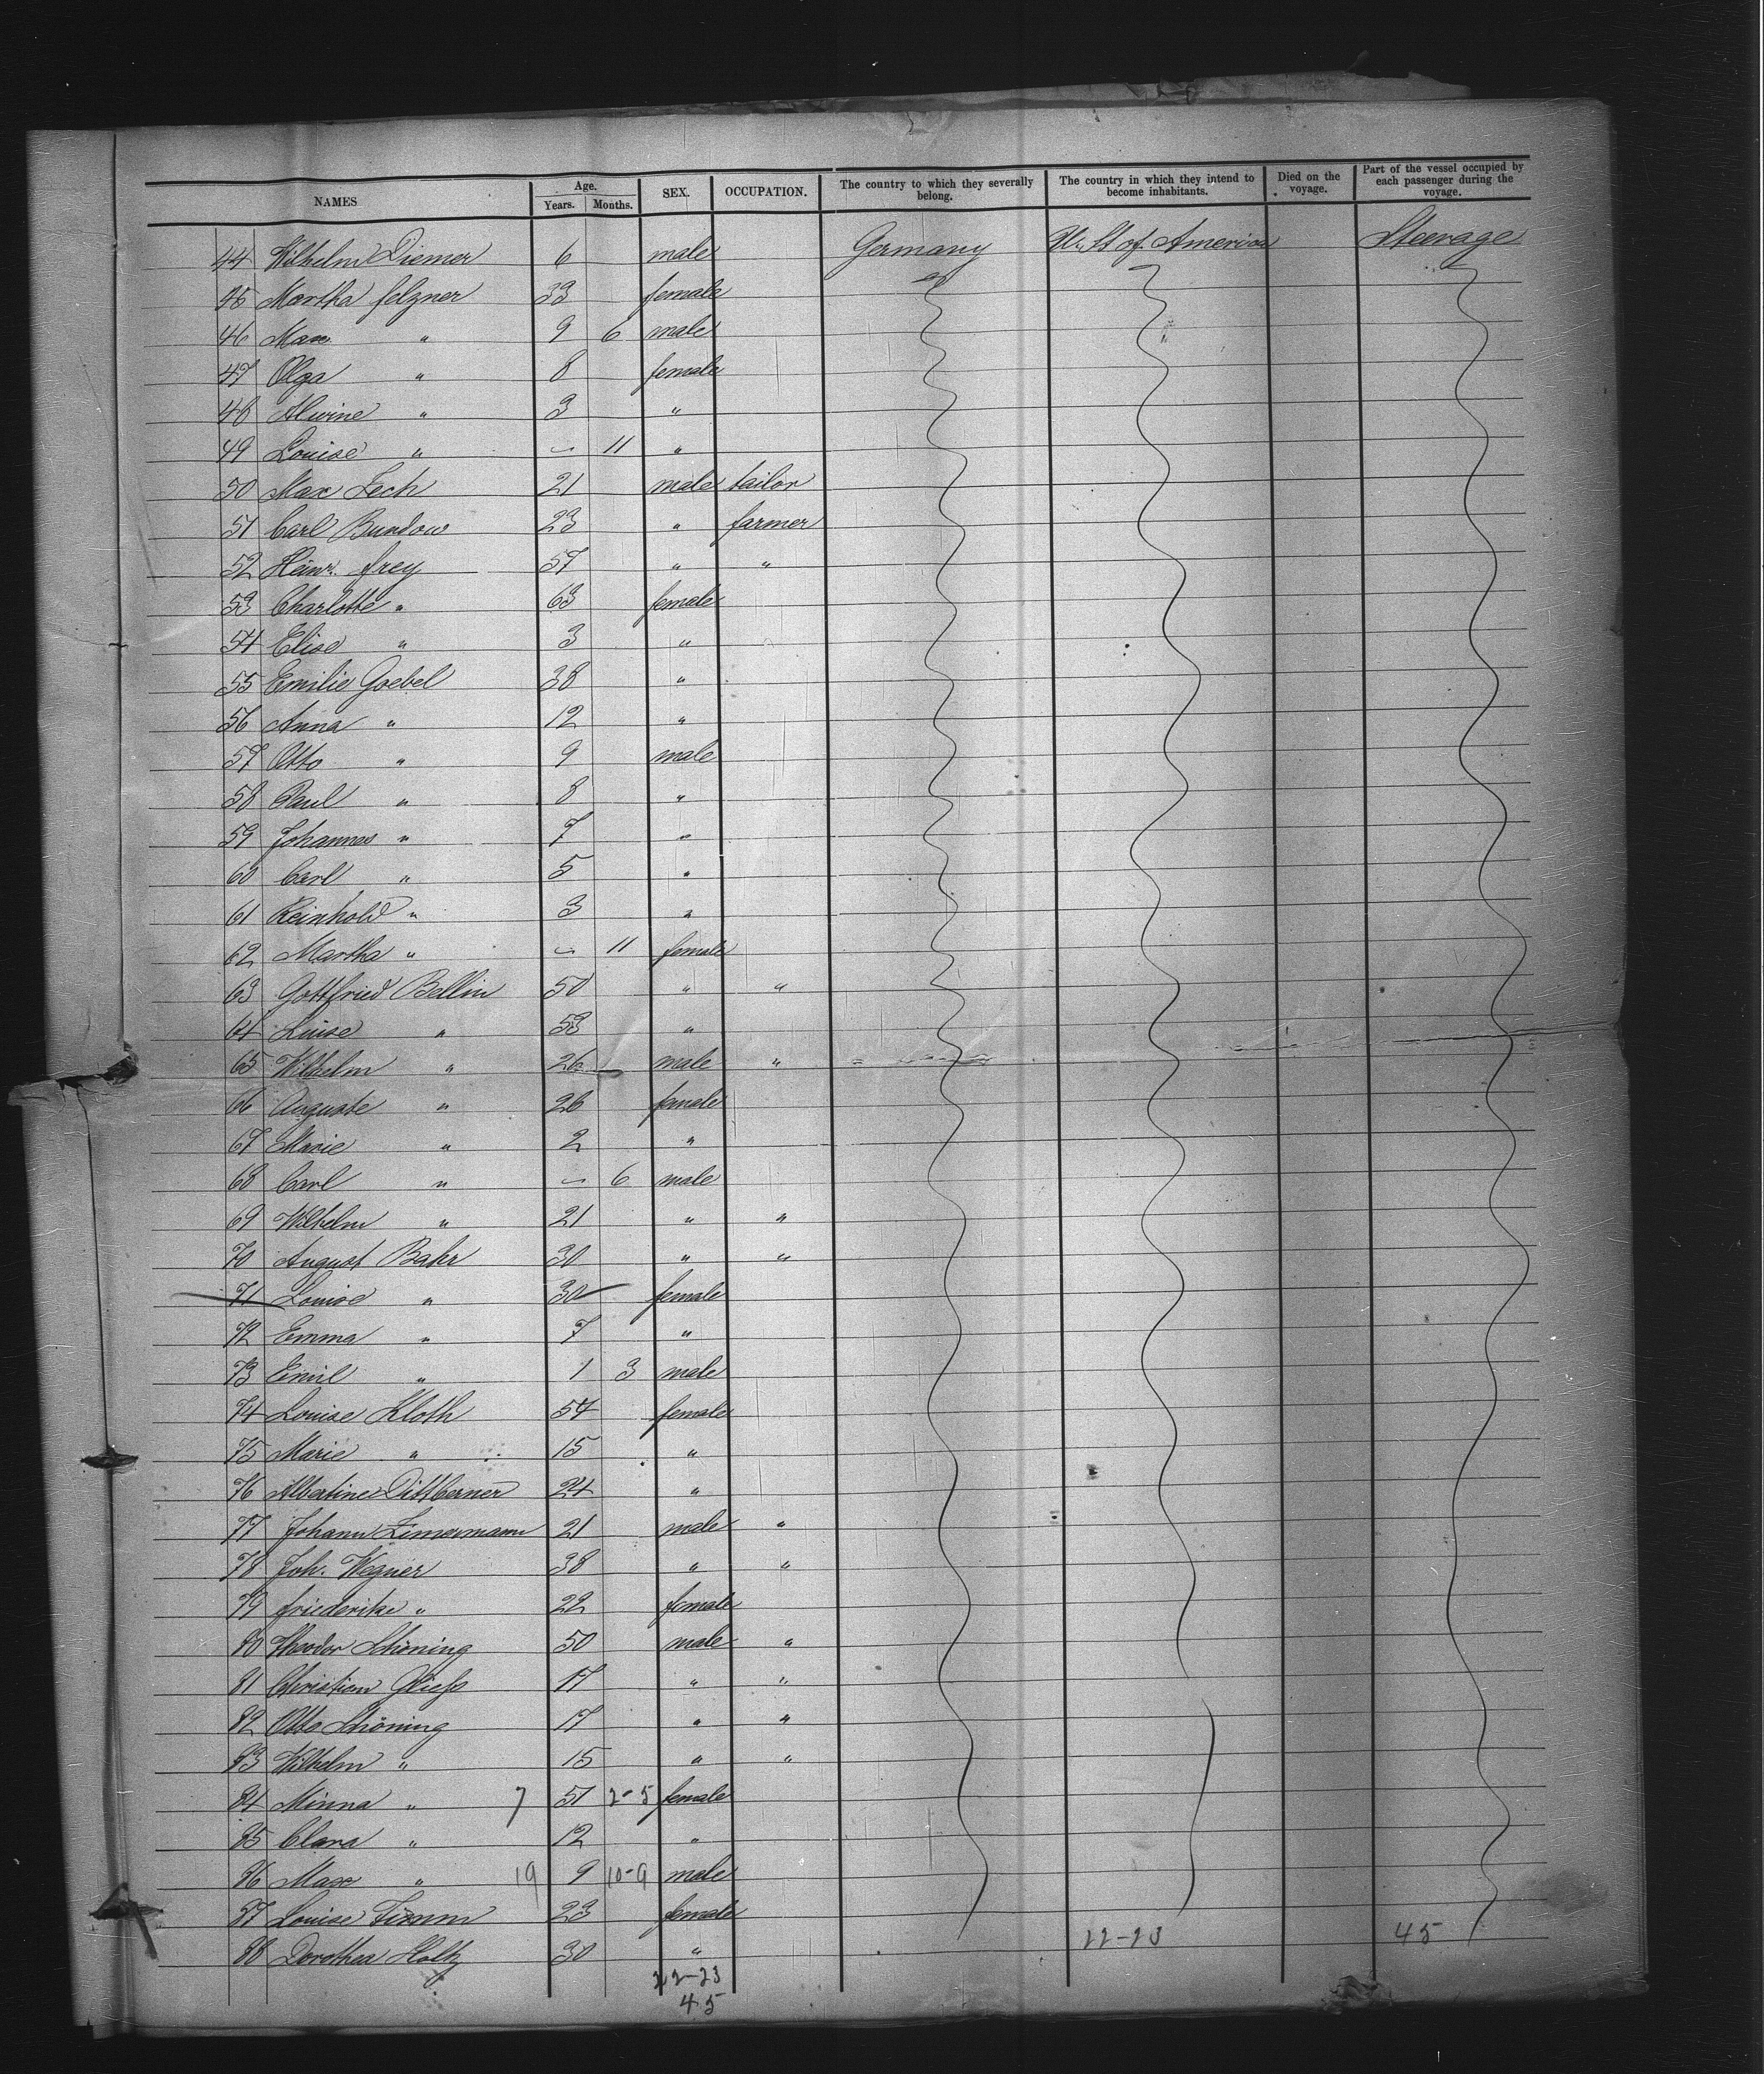 NAMES Age. Years. Months. SEX. OCCUPATION. The country to which they severally belong. The country in which they intend to become inhabitants. Died on the voyage. Part of the vessel occupied by each passenger during the voyage.
44 Wilhelm Diemer 6 male Germany U. St of. America Steerage
45 Martha Felzner 33 female
46 Max " 9 6 male
47 Olga " 8 female
48 Alwine " 3 "
49 Louise " – 11 "
50 Max Zech 21 male tailor
51 Carl Bundow 23 " farmer
52 Heinr. Frey 57 " "
53 Charlotte " 63 female
54 Elise " 3 "
55 Emilie Goebel 38 "
56 Anna " 12 "
57 Otto " 9 male
58 Paul " 8 "
59 Johannes " 7 "
60 Carl " 5 "
61 Reinhold " 3 "
62 Martha " – 11 female
63 Gottfried Bellin 50 " "
64 Luise " 53 "
65 Wilhelm " 26 male "
66 Auguste " 26 female
67 Marie " 2 "
68 Carl " – 6 male
69 Wilhelm " 21 " "
70 August Bahr 30 " "
71 Louise " 30 female
72 Emma " 7 "
73 Emil " 1 3 male
74 Louise Kloth 54 female
75 Marie " 15 "
76 Albertine Dittberner 24 "
77 Johann Zimermann 21 male "
78 Joh. Wegner 38 " "
79 Friederike " 22 female
80 Theodor Schöning 50 male "
81 Christian 17 " "
82 Otto Schöning 17 " "
83 Wilhelm " 15 " "
84 Minna " 7 51 2-5 female
85 Clara " 12 "
86 Max " 19 9 10-9 male
87 Louise Timm 23 female
88 Dorothea Holtz 30 "
22-23 22-23 45
45